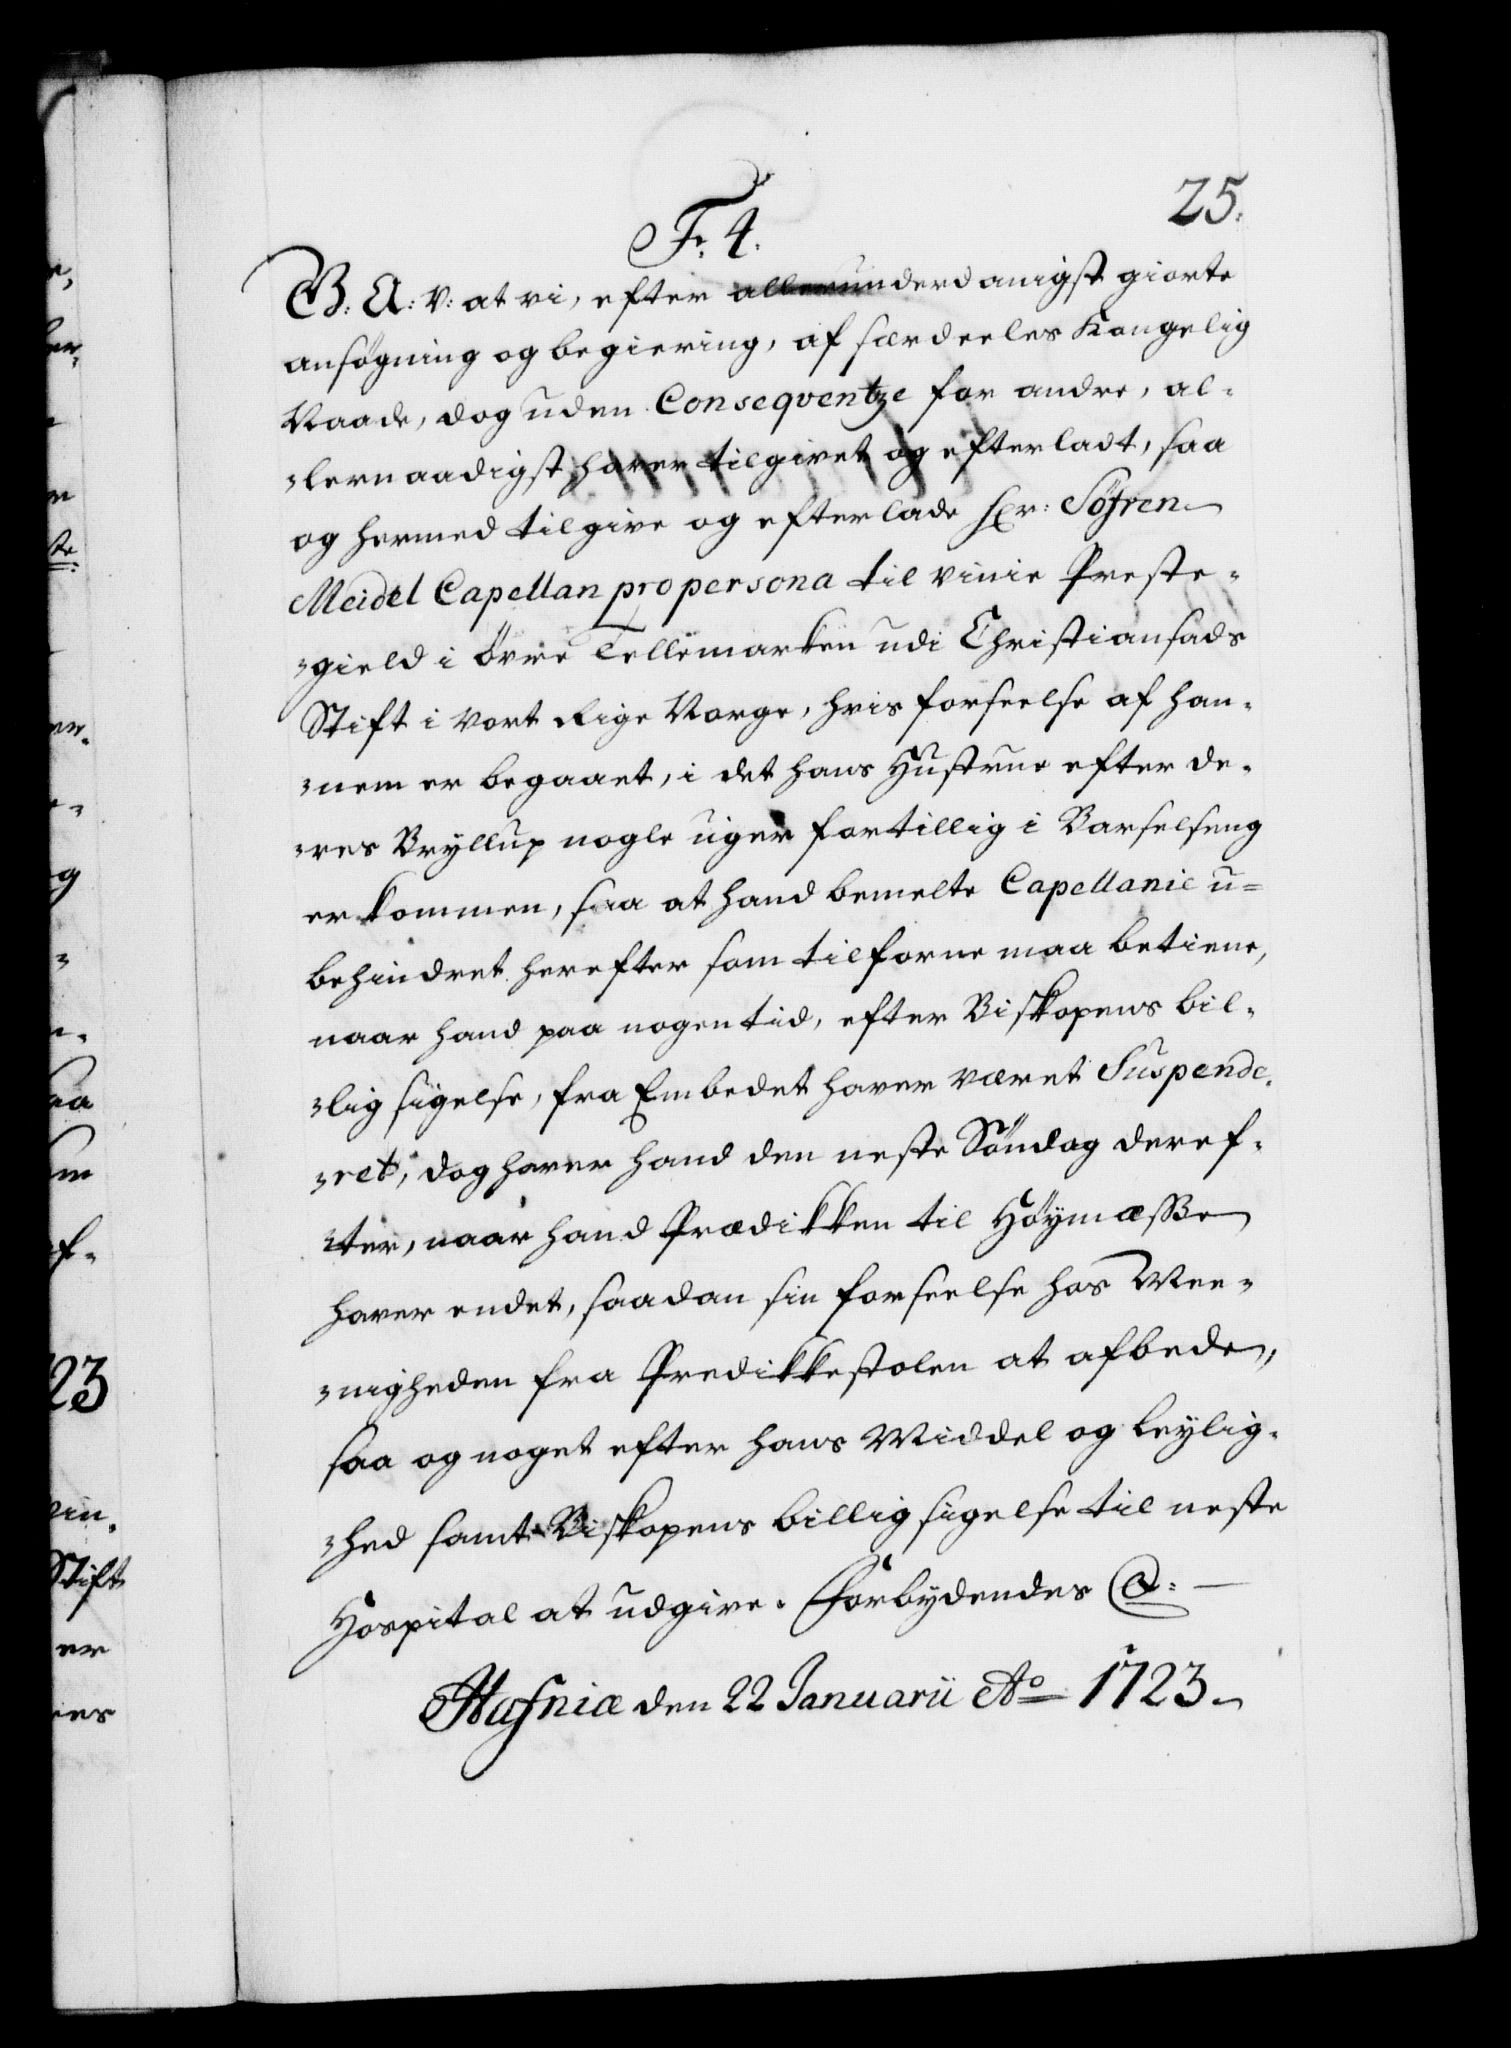 25.
Fr. 4.
G: A: V: at vi, efter allerunderdanigst giorte
ansøgning og begiering, af særdeeles Kongelig
Naade, dog uden Conseqventze for andre, al-
lernaadigst haver tilgivet og efterladt, saa
og hermed tilgive og efterlade Hr: Söfren
Meidel Capellan pro persona til Vinie Præste-
gield i Övre Tellemarken udi Christiansads
Stift i Vort Rige Norge, hvis forseelse af han-
nem er begaaet, i det hans Hustrue efter de-
res Bryllup nogle uger for tillig i Barselseng
er kommen, saa at hand bemelte Capellanie u-
behindret herefter som tilforne maa betiene,
naar hand paa nogen tid, efter Biskopens bil-
lig sigelse, fra Embedet haver været Suspende-
ret, dog haver hand den neste Söndag deref-
ter, naar hand Prædikken til Höymæsse
haver endet, saadan sin forseelse hos Mee-
nigheden fra Predikkestolen at afbede,
saa og noget efter hans Middel og leylig-
hed samt Biskopens billig sigelse til neste
Hospital at udgive. Forbydendes &:
Hafniæ den 22 Januarii Ao 1723.